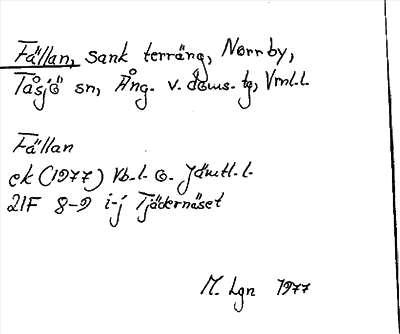 Fällan, sank terräng, Norrby,
Tåsjö sn, Ång. v. doms. tg, Vnl.l.
Fällan
ek (1977) Vb.l. o. Jämtl.l.
21F 8-9 i-j Tjädernäset
M. Lgn 1977